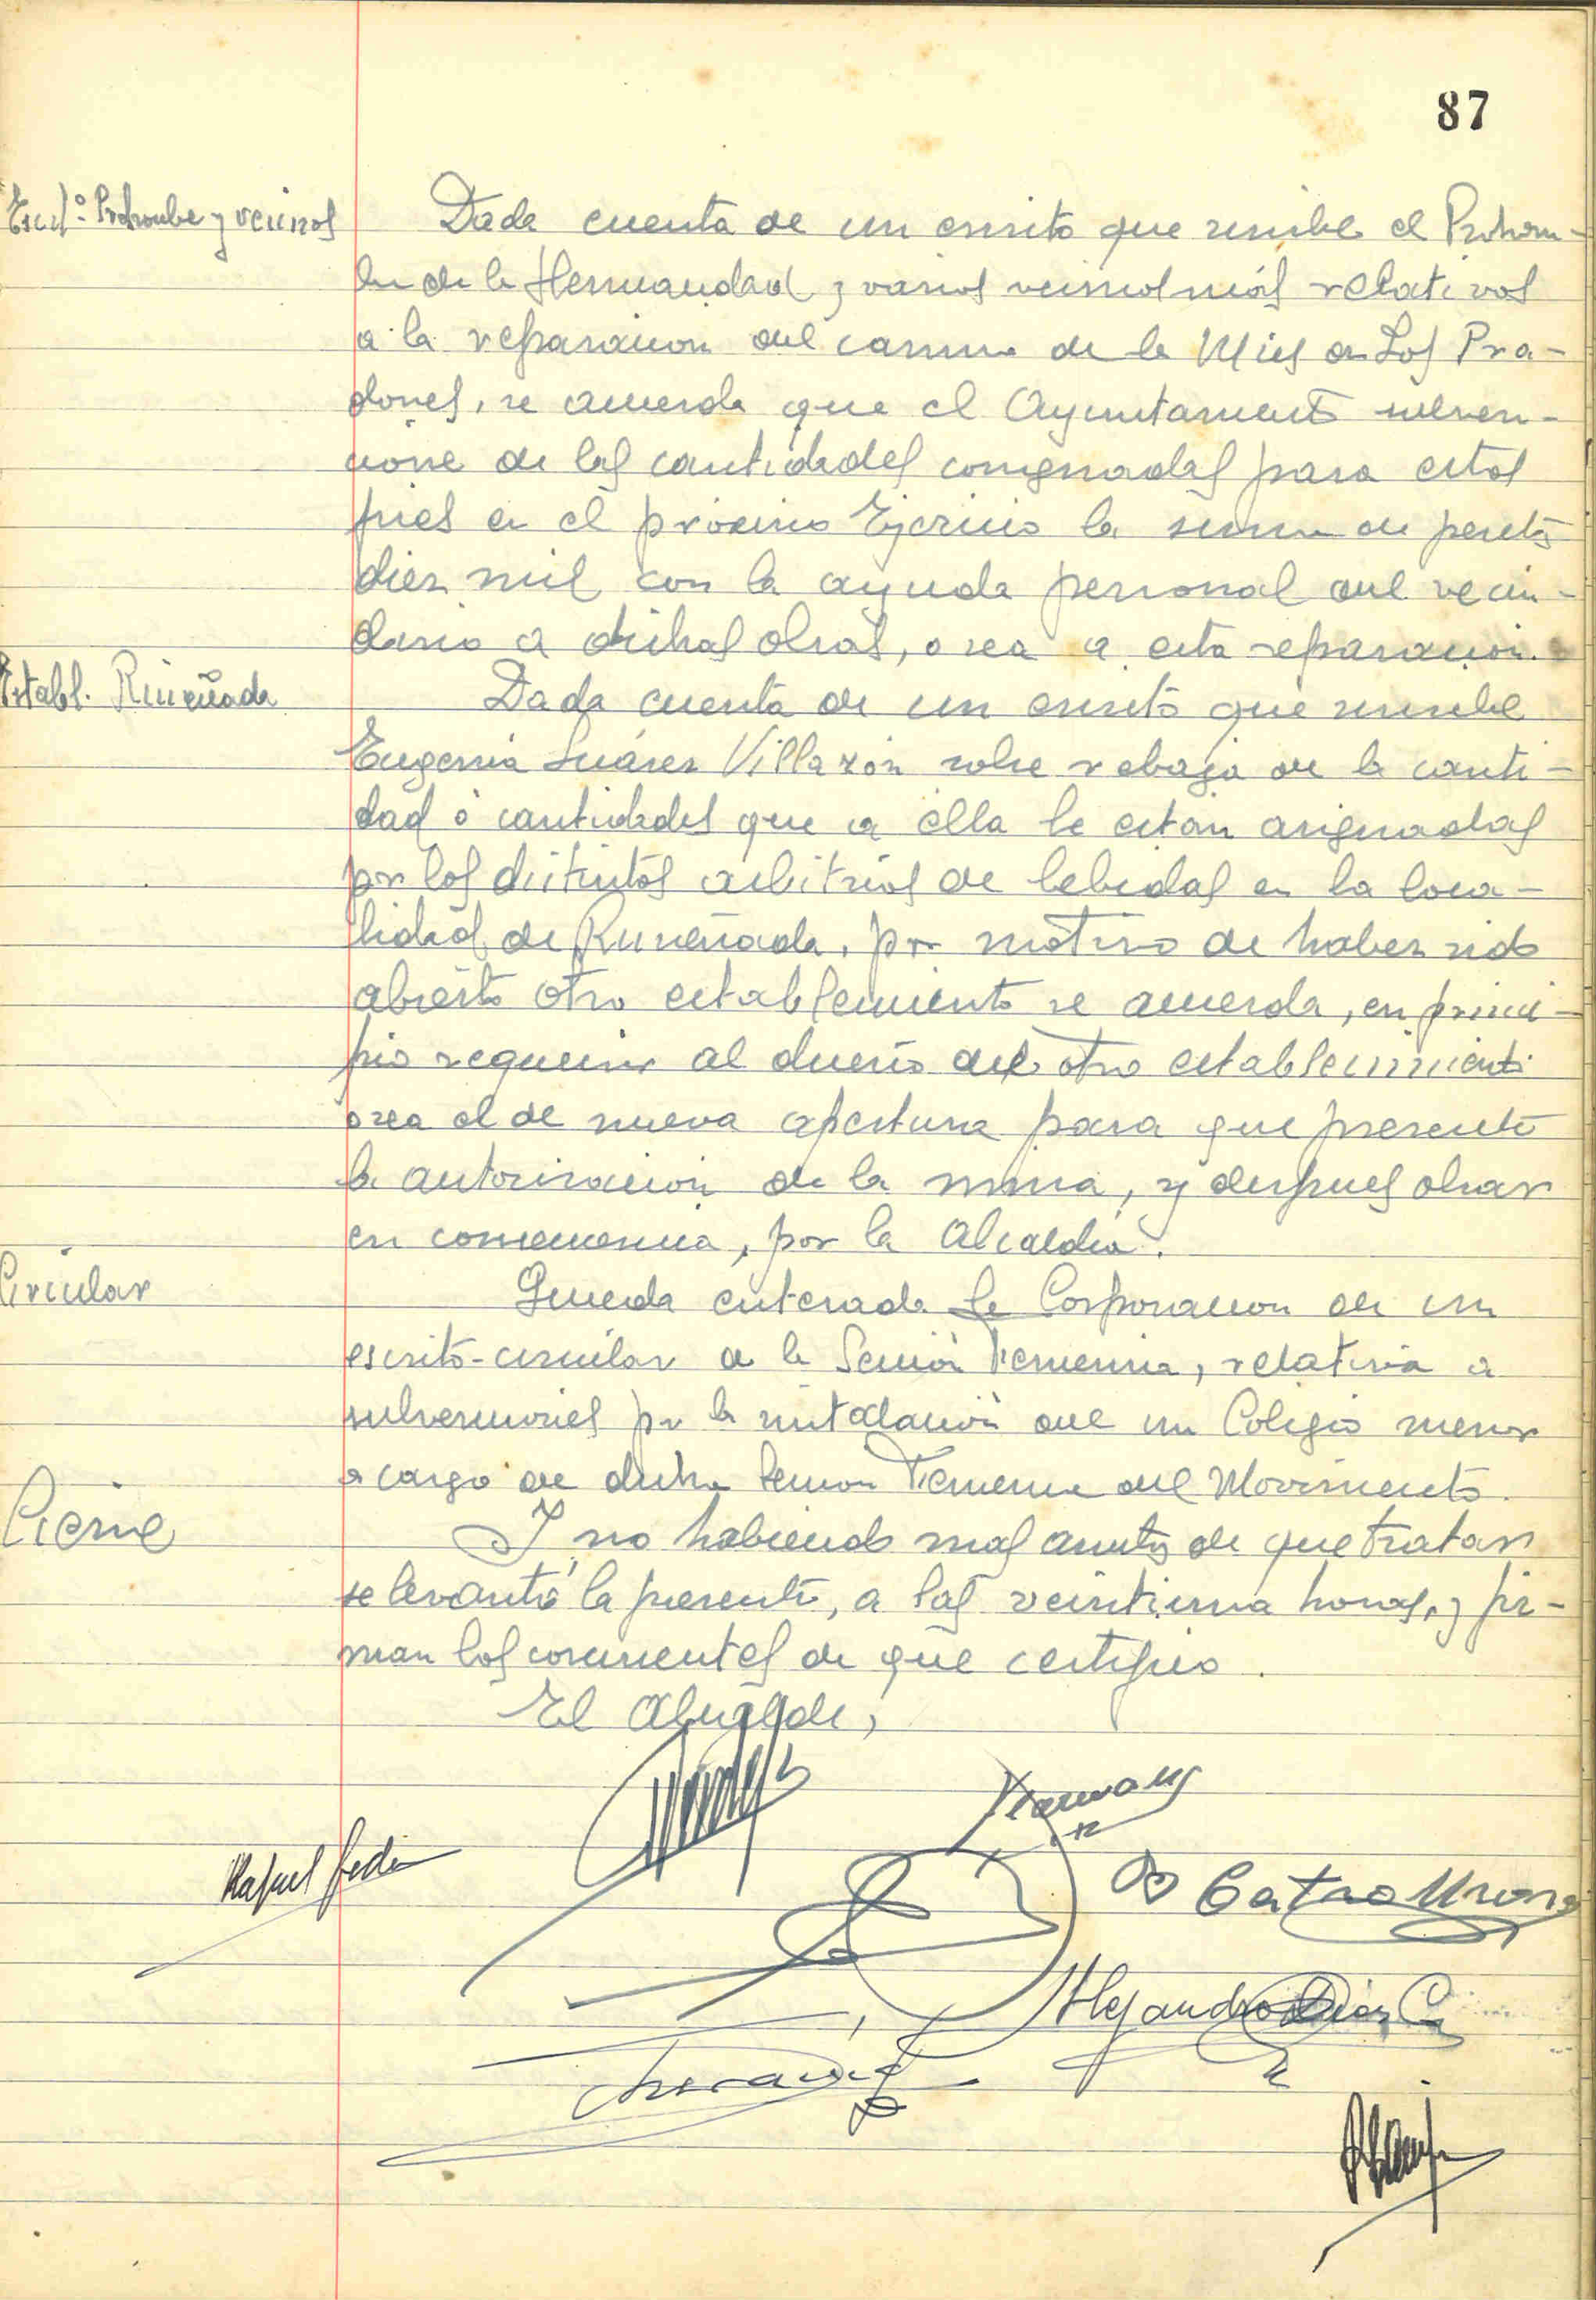 87
Escrº. Prohombe y vecinos
Dada cuenta de un escrito que suscribe el Prohom-
bre de la Hermandad y varios vecinos más relativos
a la reparacion del camino de la Mies de Los Pra-
dones, se acuerda que el Ayuntamiento subven-
cione de las cantidades consignadas para estos
fines en el próximo Ejercicio la suma de pesetas
diez mil con la ayuda personal del vecin-
dario a dichas obras, o sea a esta reparación.
Establ. Riuñada
Dada cuenta de un escrito que suscribe
Eugenia Suárez Villazón sobre rebaja de la canti-
dad ó cantidades que a élla le están asignadas
por los distintos arbitrios de bebidas en la loca-
lidad de Runeñada, por motivo de haber sido
abierto otro establecimiento se acuerda, en princi-
pio requerir al dueño del otro establecimiento
o sea el de nueva apertura para que presente
la autorizacion de la misma, y despues obrar
en consecuencia, por la Alcaldía.
Circular
Queda enterada la Corporacion de un
escrito-circular de la Sección Femenina, relativa a
subvenciones por la instalación del un Colegio menor
a cargo de dicha Seccion Femenina del Movimiento.
Cierre
Y no habiendo mas asuntos de que tratar
se levantó la presente, a las veintiuna horas, y fir-
man los concurrentes de que certifico.
El Alcalde,
Rafael
Castro
Alejandro Díaz